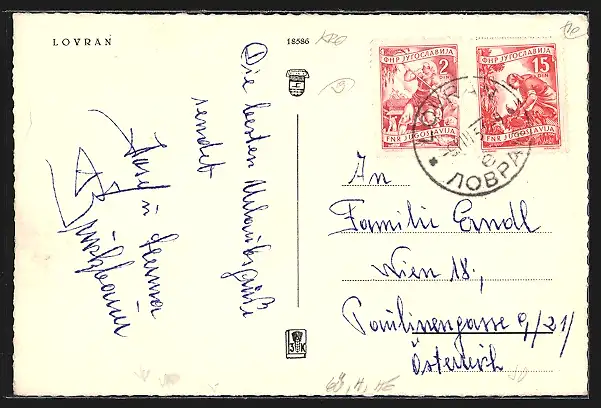 LOVRAN
18586
Die besten Urlaubsgrüße
sendet
Josef u. Hanna
ФНР ЈУГОСЛАВИЈА
2
DIN
FNR JUGOSLAVIJA
ФНР ЈУГОСЛАВИЈА
15
DIN
FNR JUGOSLAVIJA
LOVRAN
ЛОВРАН
An
Familie Erndl
Wien 18.,
Paulinengasse 9/21/
Österreich